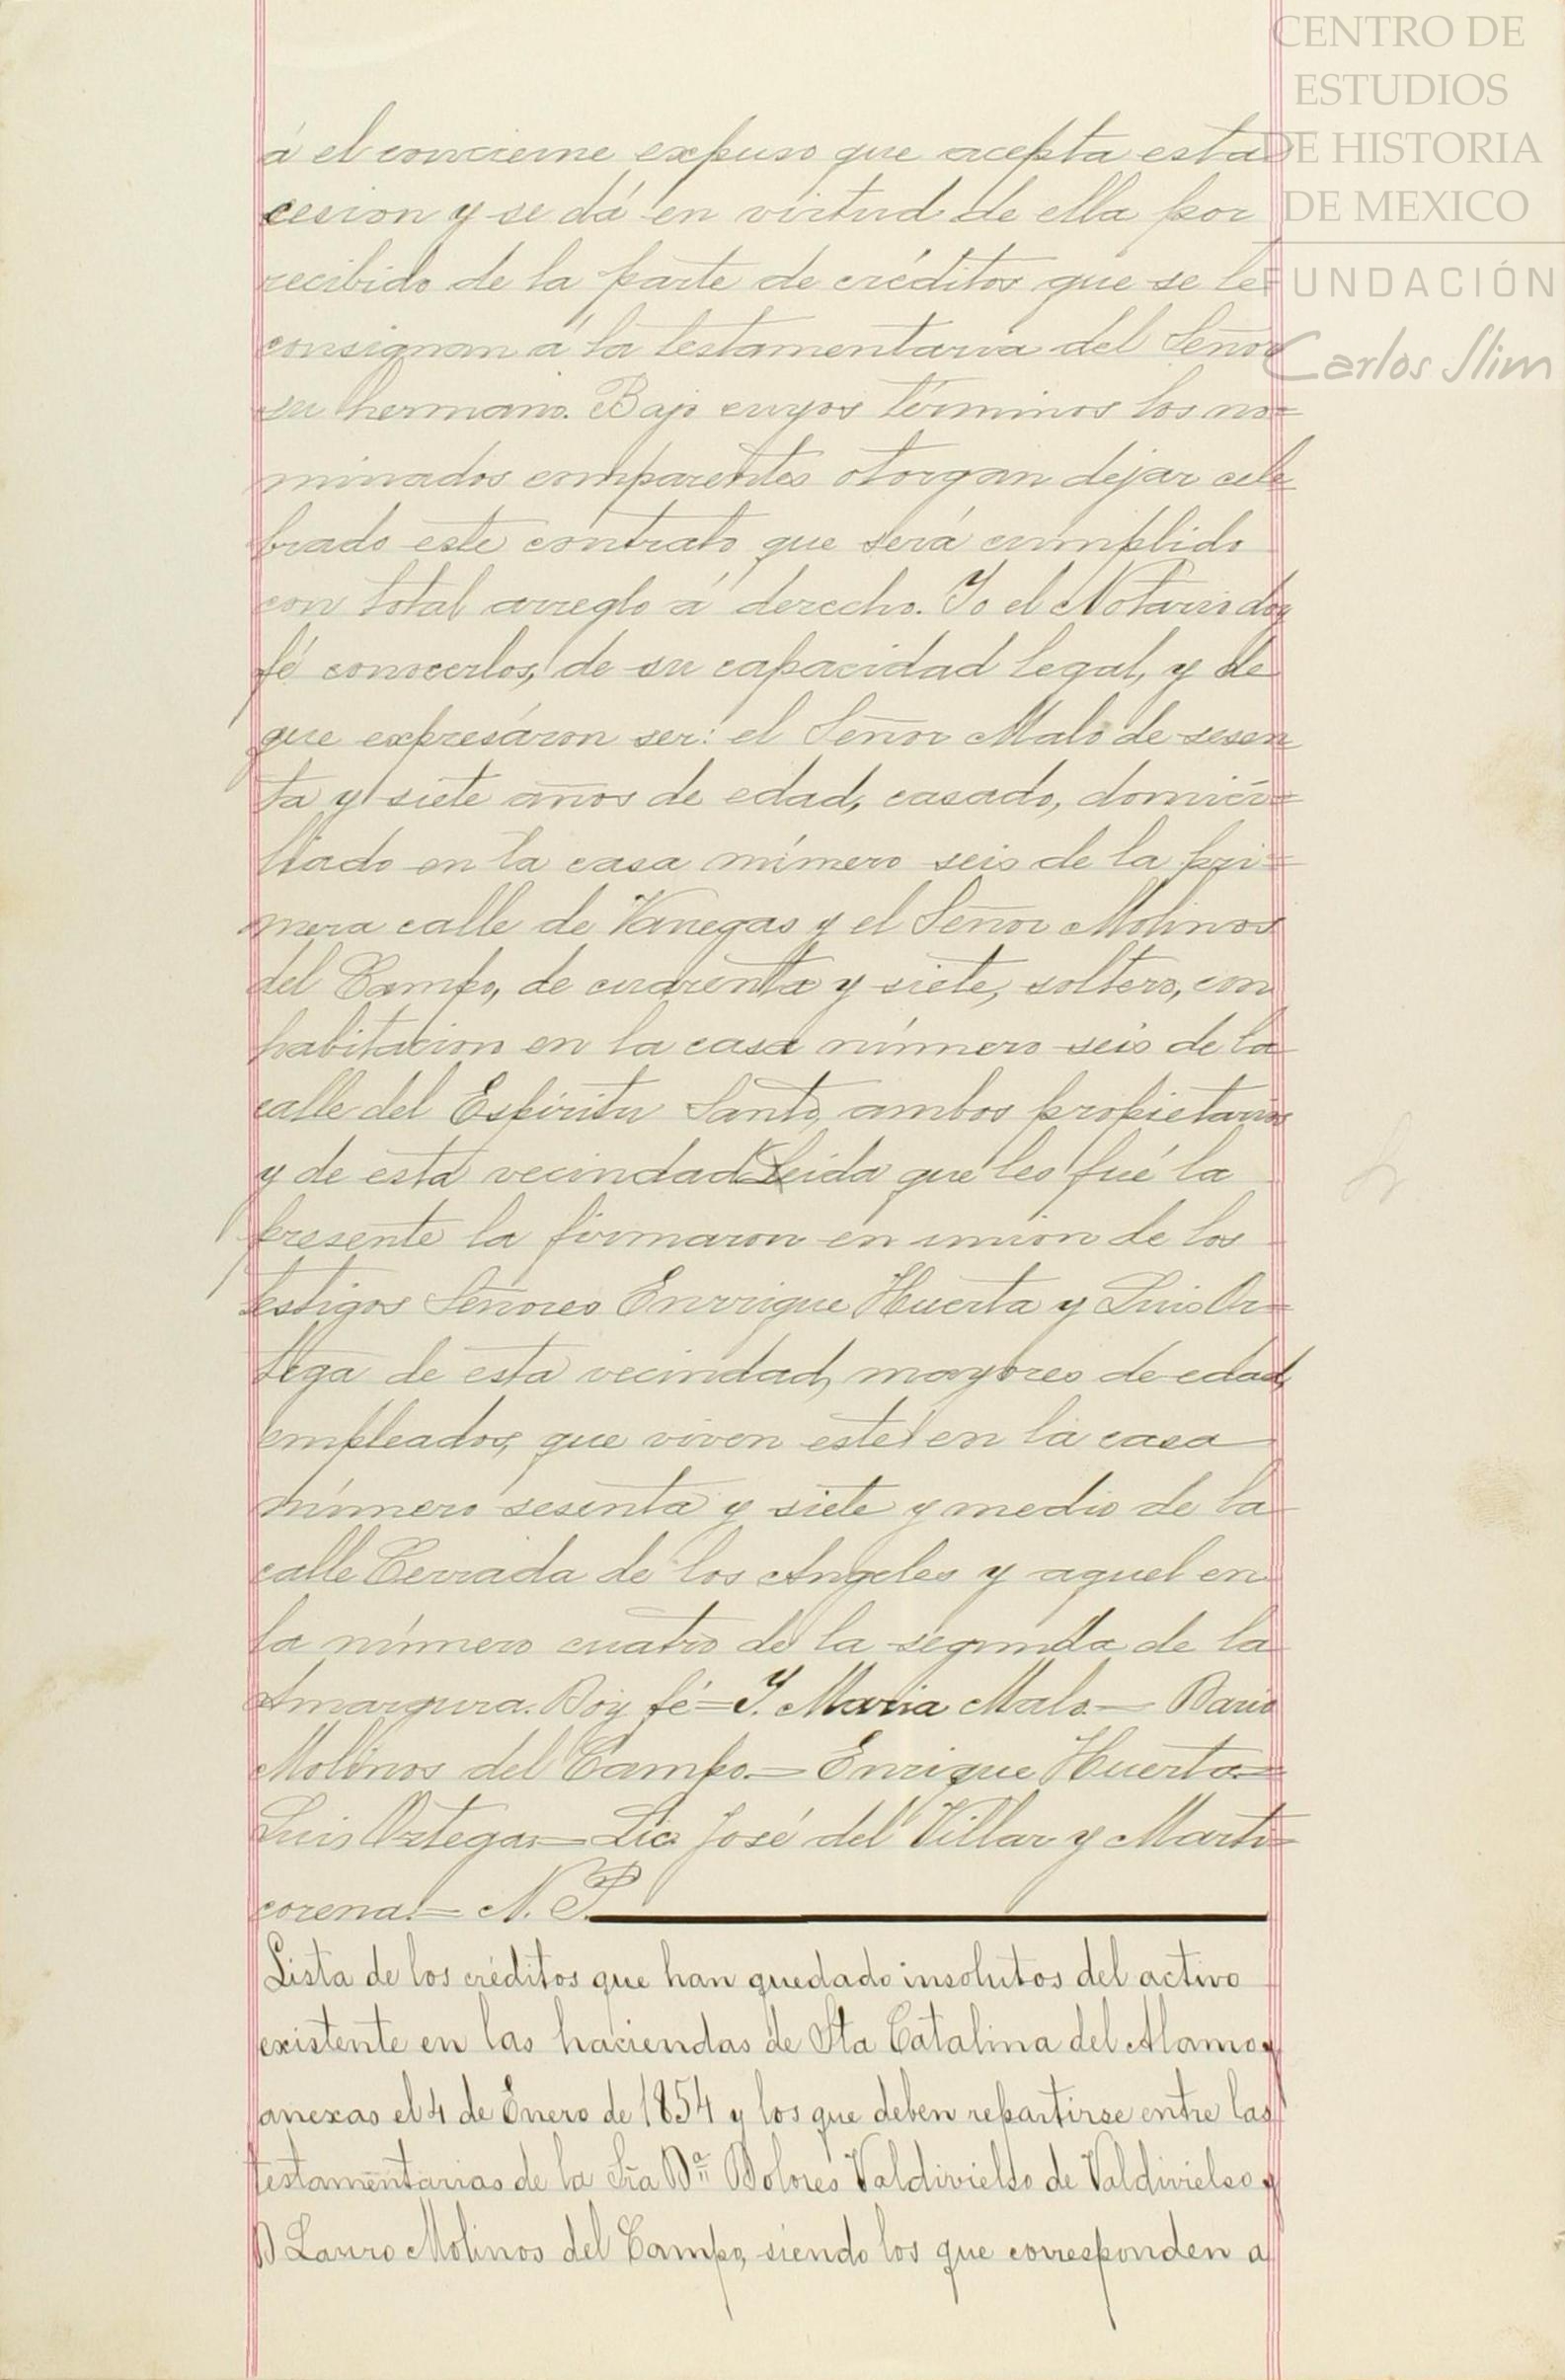 CENTRO DE
ESTUDIOS
DE HISTORIA
DE MEXICO
FUNDACIÓN
Carlos Slim
á el concierne expuso que acepta esta
cesion y se dá en virtud de ella por
recibido de la parte de créditos que se le
consignan á la testamentaria del Señor
su hermano. Bajo cuyos términos los no=
minados comparentes otorgan dejar cele
brado este contrato que será cumplido
con total arreglo á derecho. Yo el Notario doy
fé conocerlos, de su capacidad legal, y de
que expresáron ser: el Señor Malo de sesen
ta y siete años de edad, casado, domici=
liado en la casa número seis de la pri=
mera calle de Vanegas y el Señor Molinos
del Campo, de cuarenta y siete, soltero, con
habitacion en la casa número seis de la
calle del Espíritu Santo, ambos propietarios
y de esta vecindad Leida que les fué la
presente la firmaron en union de los
testigos Señores Enrrique Huerta y Luis Or=
tega de esta vecindad, mayores de edad,
empleados, que viven este en la casa
número sesenta y siete y medio de la
calle Cerrada de los Angeles y aquel en
la número cuatro de la segunda de la
Amargura. Doy fé=J. Maria Malo.= Dario
Molinos del Campo.= Enrique Huerta.=
Luis Ortega.= Lic. José del Villar y Marti=
corena.= N. P.
Lista de los créditos que han quedado insolutos del activo
existente en las haciendas de Sta Catalina del Alamo y
anexas el 4 de Enero de 1854 y los que deben repartirse entre las
testamentarias de la Sra Dª Dolores Valdivielso de Valdivielso y
D Lauro Molinos del Campo, siendo los que corresponden a